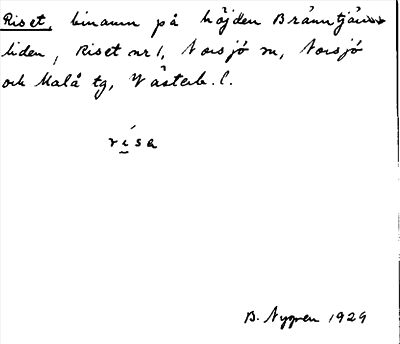 Riset, binamn på höjden Bränntjärns-
liden, Riset nr 1, Norsjö sn, Norsjö
och Malå tg, Västerb. l.
rísa
B. Nygren 1929